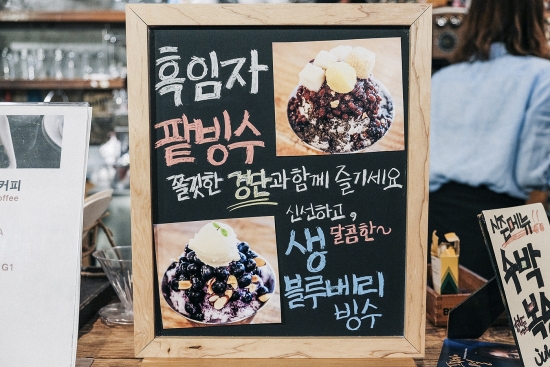 흑임자
팥빙수
쫄깃한 경단과 함께 즐기세요
신선하고,
달콤한~
생
블루베리
빙수
커피
offee
A
G1